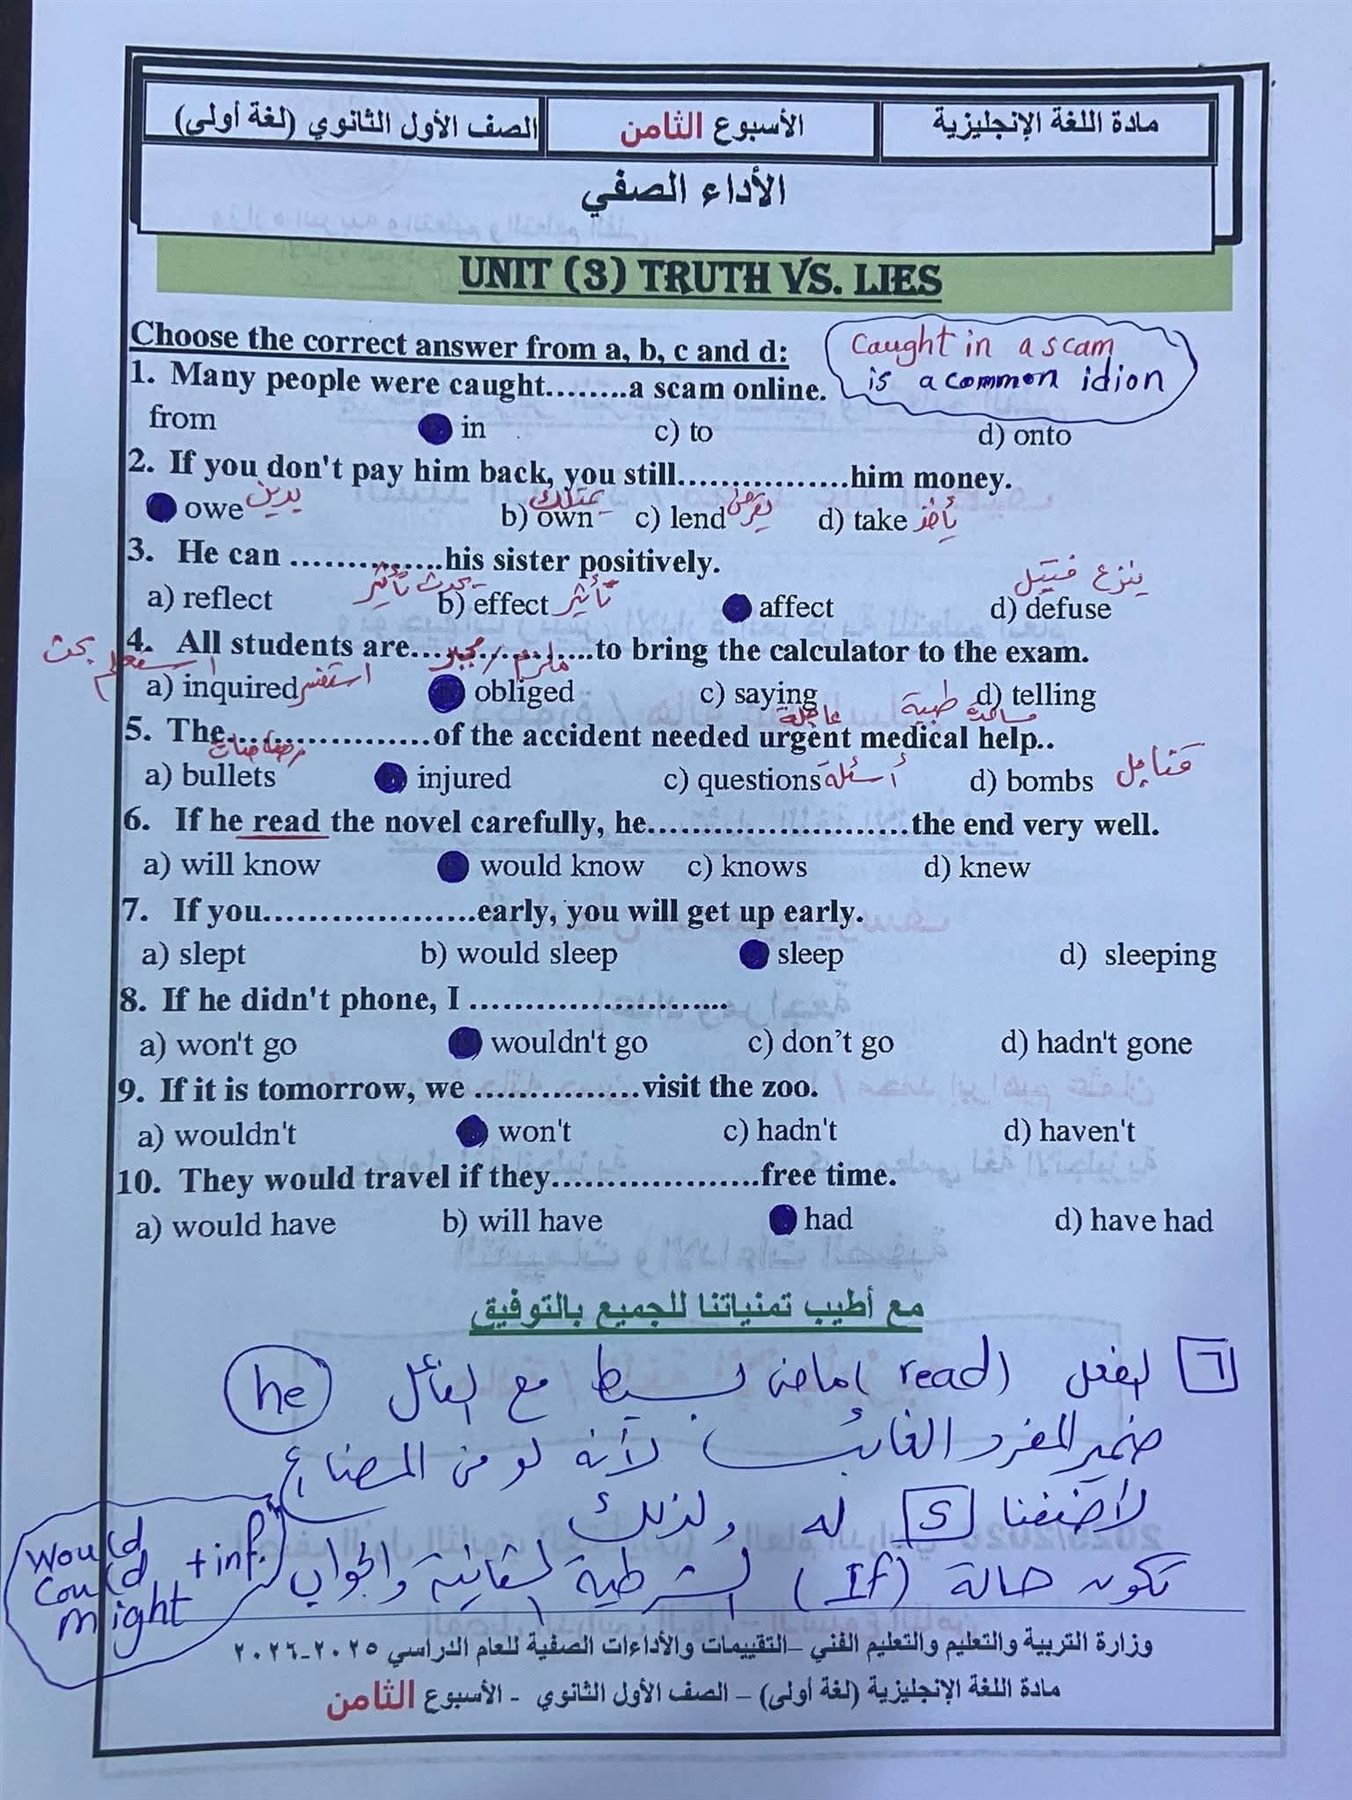 مادة اللغة الإنجليزية الأسبوع الثامن الصف الأول الثانوي (لغة أولى)
الأداء الصفي
UNIT (3) TRUTH VS. LIES
Choose the correct answer from a, b, c and d:
Caught in a scam
is a common idion
1. Many people were caught........a scam online.
from in c) to d) onto
2. If you don't pay him back, you still...............him money.
owe يدين b) own يمتلك c) lend يقرض d) take يأخذ
3. He can ..............his sister positively.
a) reflect يحدث تأثير b) effect تأثير affect d) defuse ينزع فتيل
4. All students are................to bring the calculator to the exam.
ملزم / مجبر
a) inquired استفسر b) obliged c) saying d) telling
5. The..................of the accident needed urgent medical help..
عاجلة مساعدة طبية
a) bullets رصاصات b) injured c) questions أسئلة d) bombs قنابل
6. If he read the novel carefully, he.......................the end very well.
a) will know would know c) knows d) knew
7. If you...................early, you will get up early.
a) slept b) would sleep sleep d) sleeping
8. If he didn't phone, I .......................
a) won't go b) wouldn't go c) don’t go d) hadn't gone
9. If it is tomorrow, we ...............visit the zoo.
a) wouldn't won't c) hadn't d) haven't
10. They would travel if they...................free time.
a) would have b) will have had d) have had
مع أطيب تمنياتنا للجميع بالتوفيق
6 الفعل (read) ماضى بسيط مع الفاعل he
ضمير المفرد الغائب) لأنه لو فى المضارع
لأضفنا s له ولذلك
تكون حالة (If) الشرطية الثانية والجواب
would
could + inf.
might
وزارة التربية والتعليم والتعليم الفني –التقييمات والأداءات الصفية للعام الدراسي ٢٠٢٥-٢٠٢٦
مادة اللغة الإنجليزية (لغة أولى) – الصف الأول الثانوي - الأسبوع الثامن